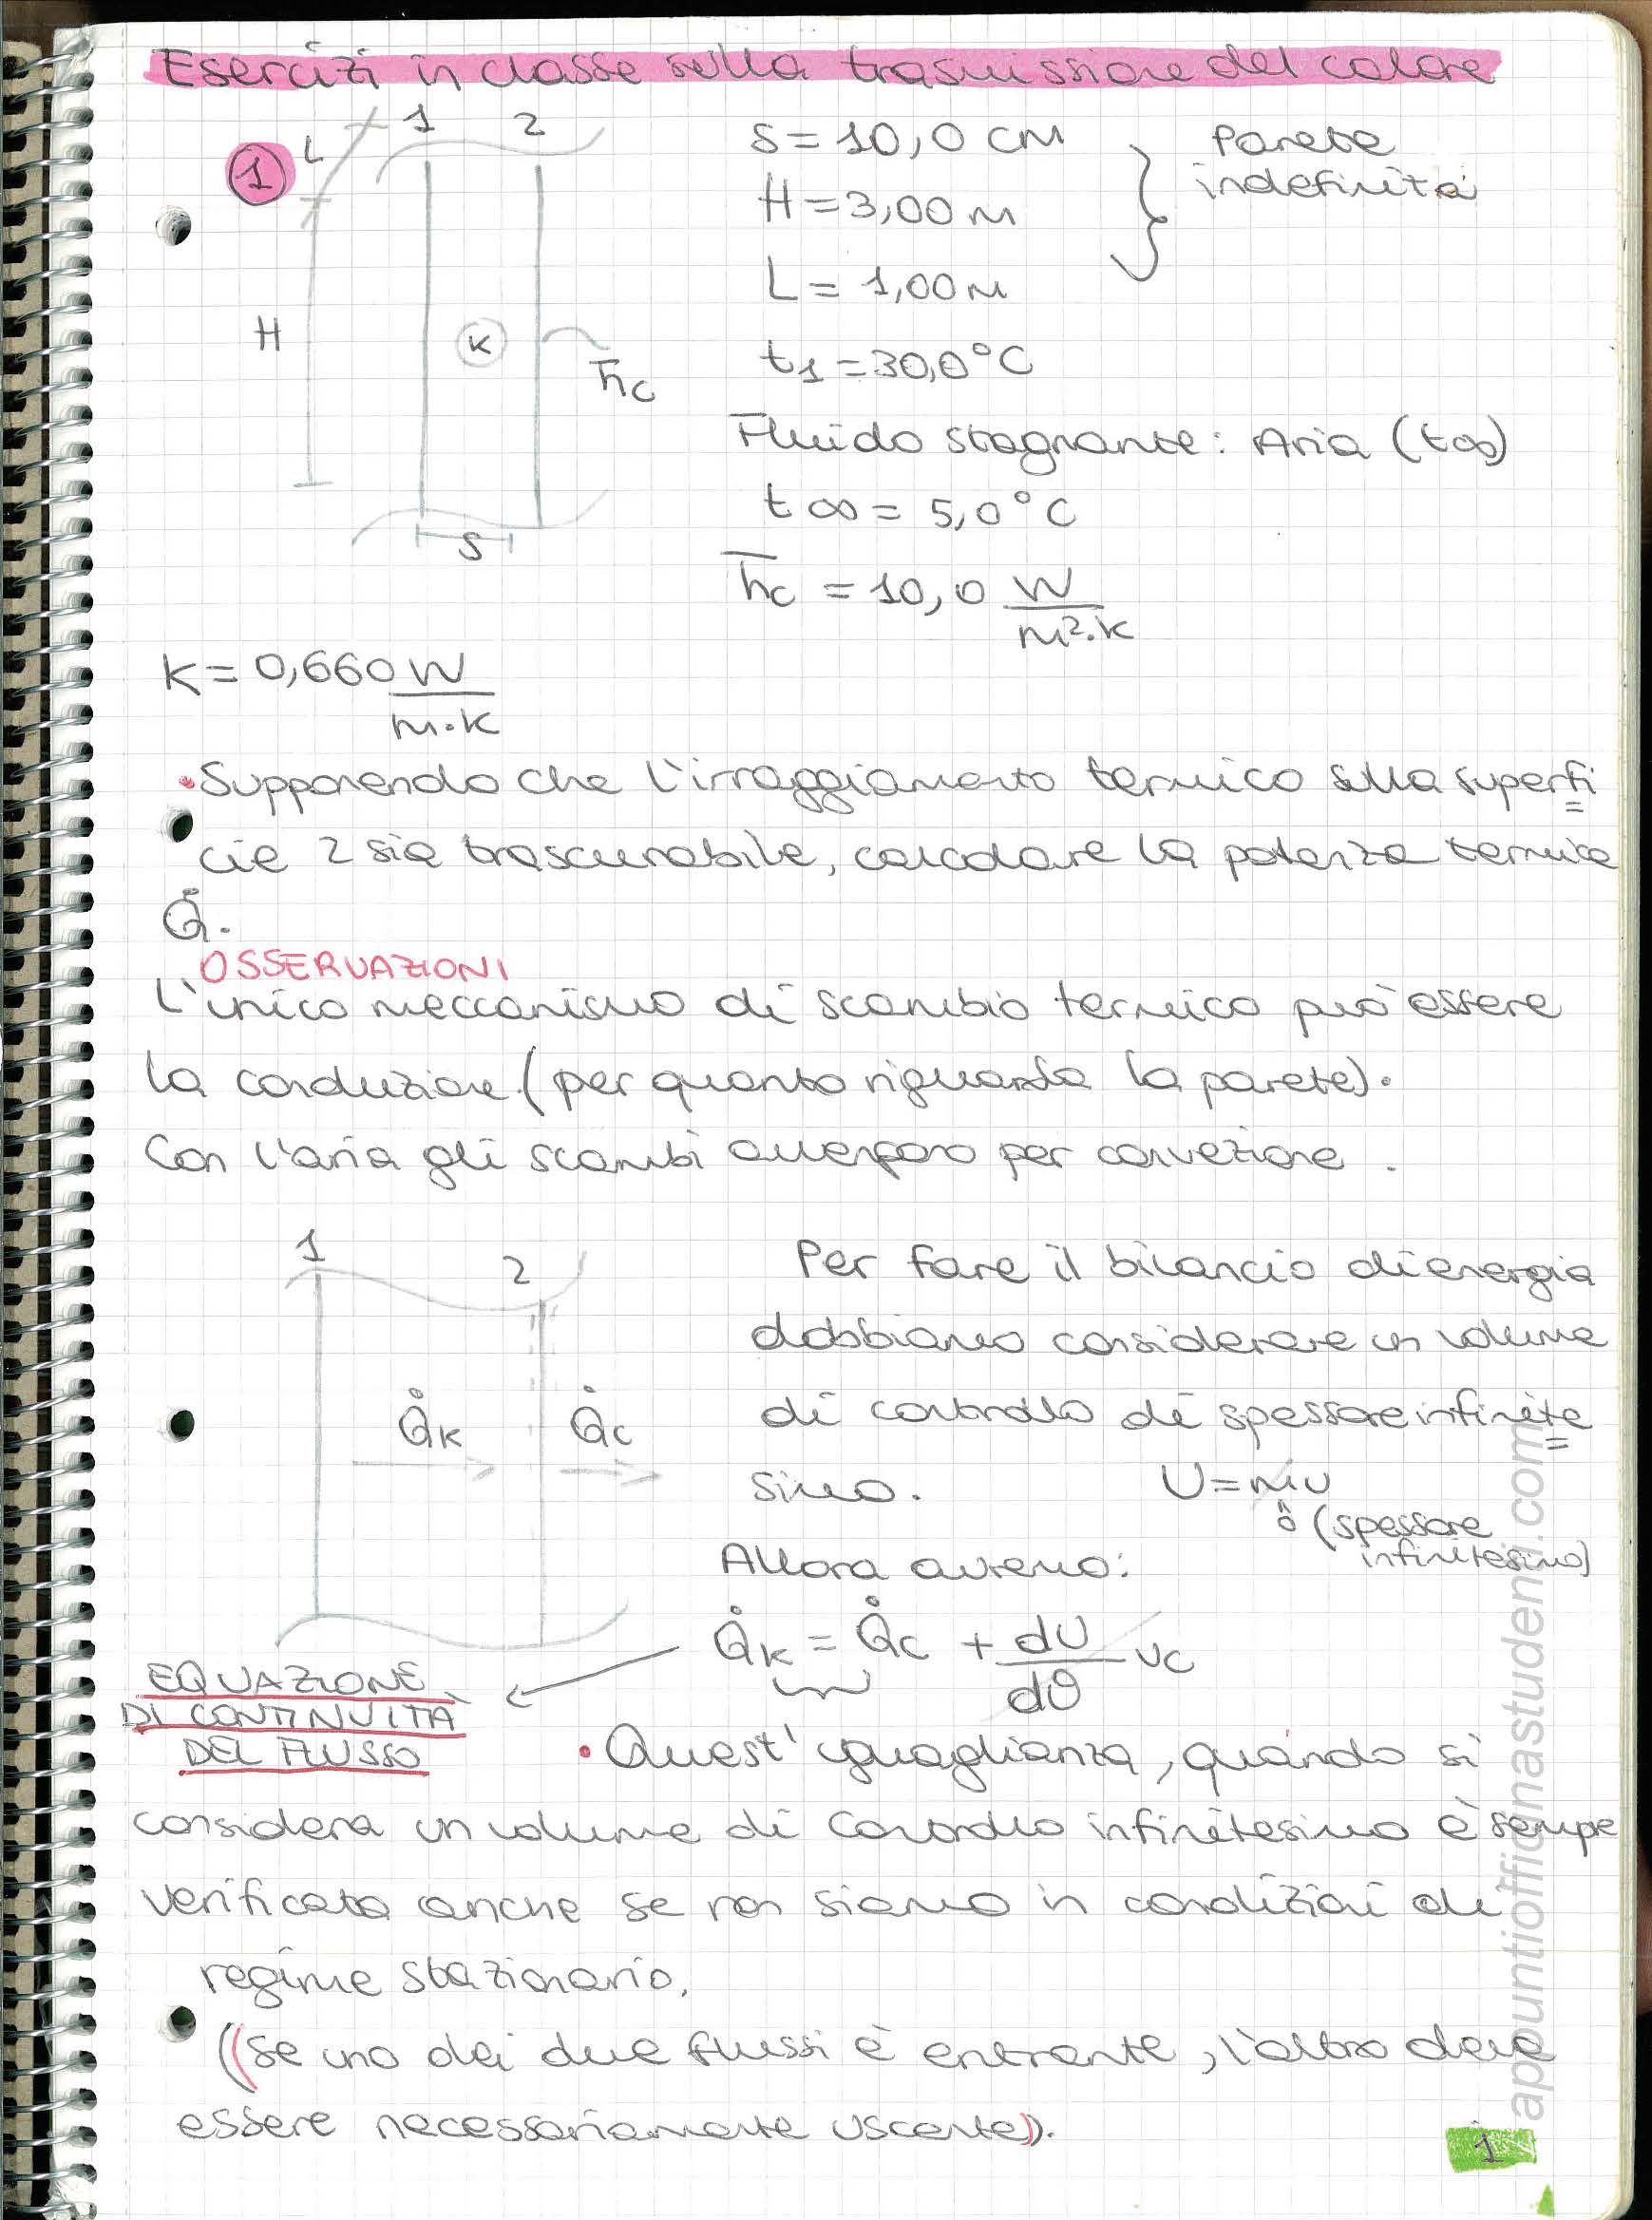 Esercizi in classe sulla trasmissione del calore
1
L
1 2
H
K
h̅c
s
s = 10,0 cm
H = 3,00 m
L = 1,00 m
Parete
indefinita
t₁ = 30,0°C
Fluido stagnante: Aria (t∞)
t∞ = 5,0°C
h̅c = 10,0 W/m²·K
K = 0,660 W/m·K
• Supponendo che l'irraggiamento termico sulla superfi=
cie 2 sia trascurabile, calcolare la potenza termica
Q̇.
OSSERVAZIONI
L'unico meccanismo di scambio termico può essere
la conduzione (per quanto riguarda la parete).
Con l'aria gli scambi avvengono per convezione.
1 2
Q̇K Q̇c
Per fare il bilancio di energia
dobbiamo considerare un volume
di controllo di spessore infinite=
simo.
U = mu
0 (spessore
infinitesimo)
Allora avremo:
Q̇K = Q̇c + dU/dθ VC
EQUAZIONE
DI CONTINUITÀ
DEL FLUSSO
• Quest'uguaglianza, quando si
considera un volume di controllo infinitesimo è sempre
verificata anche se non siamo in condizioni di
regime stazionario.
((se uno dei due flussi è entrante, l'altro deve
essere necessariamente uscente)).
1
appuntiofficinastudenti.com